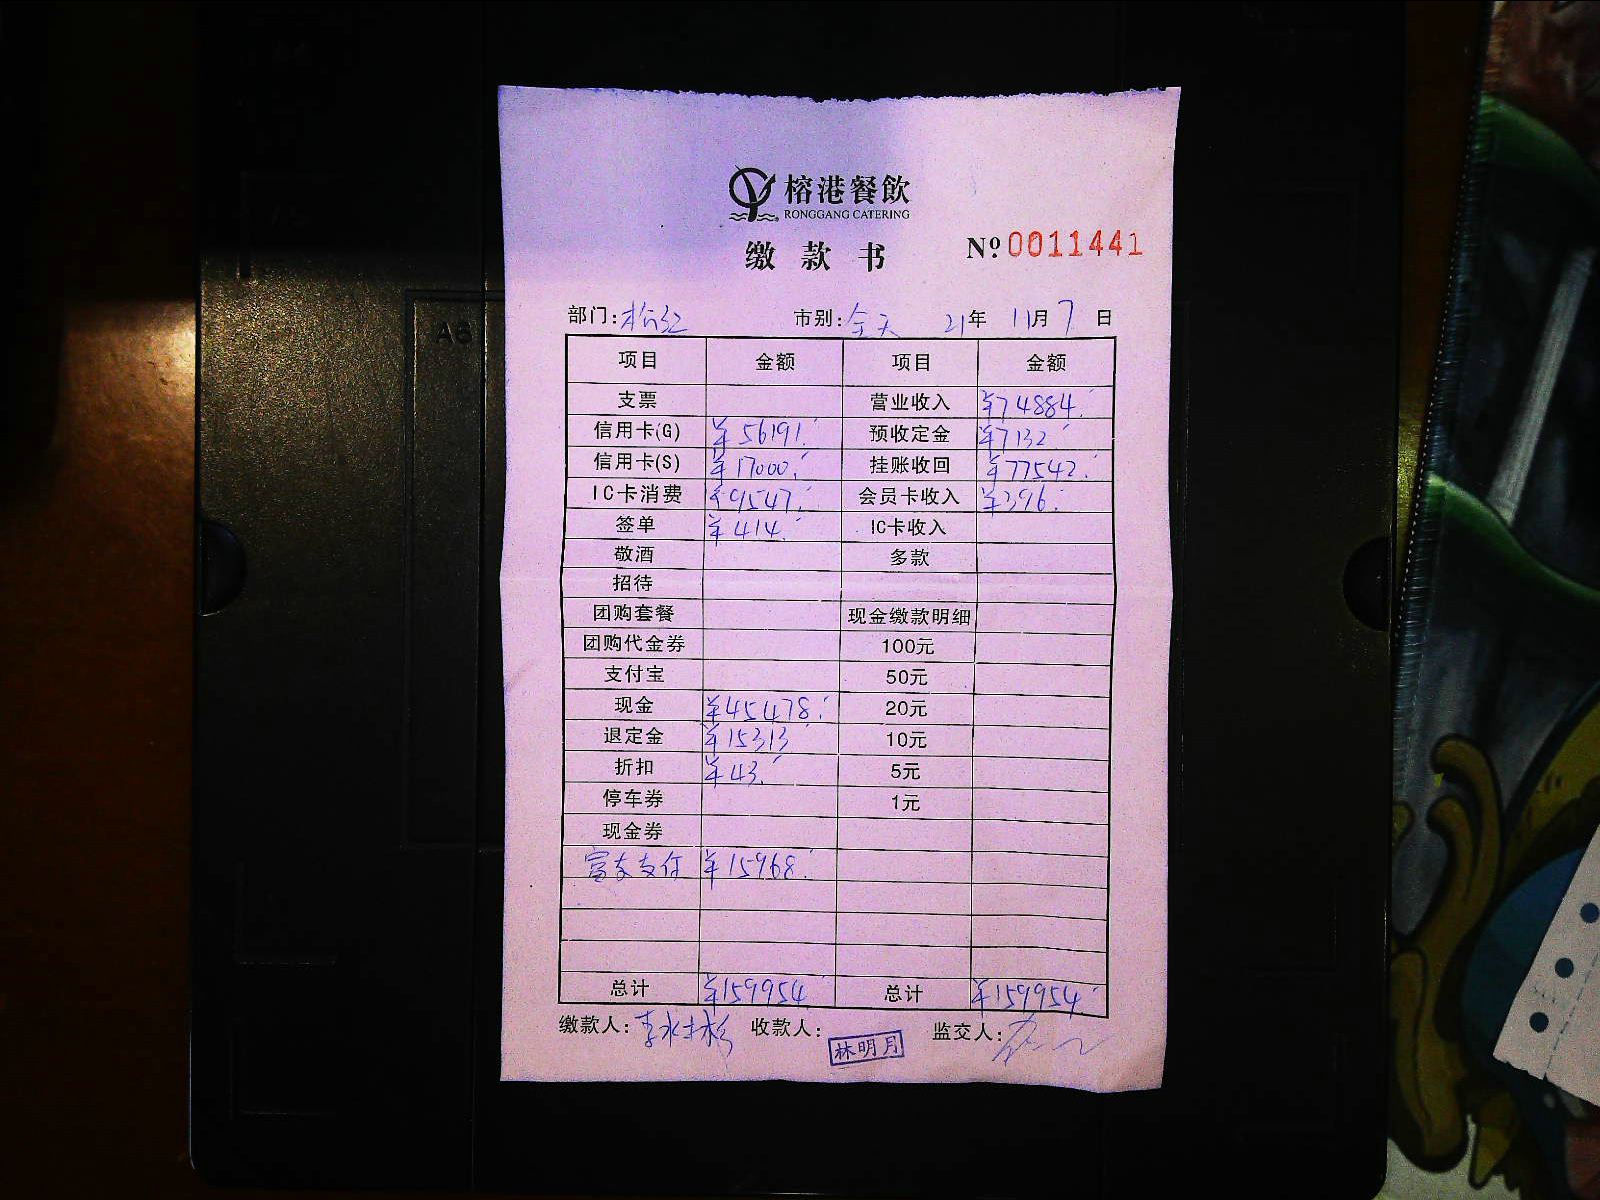 榕港餐飲
RONGGANG CATERING
缴款书 №0011441
部门: 市别:全天 21年 11月 7日
项目 金额 项目 金额
支票 营业收入 ¥74884.
信用卡(G) ¥56191. 预收定金 ¥7132
信用卡(S) ¥17000. 挂账收回 ¥77542.
IC卡消费 ¥9547. 会员卡收入 ¥396.
签单 ¥414. IC卡收入
敬酒 多款
招待
团购套餐 现金缴款明细
团购代金券 100元
支付宝 50元
现金 ¥45478. 20元
退定金 ¥15313 10元
折扣 ¥43. 5元
停车券 1元
现金券
富友支付 ¥15968.
总计 ¥159954 总计 ¥159954.
缴款人: 收款人:林明月 监交人:
A6